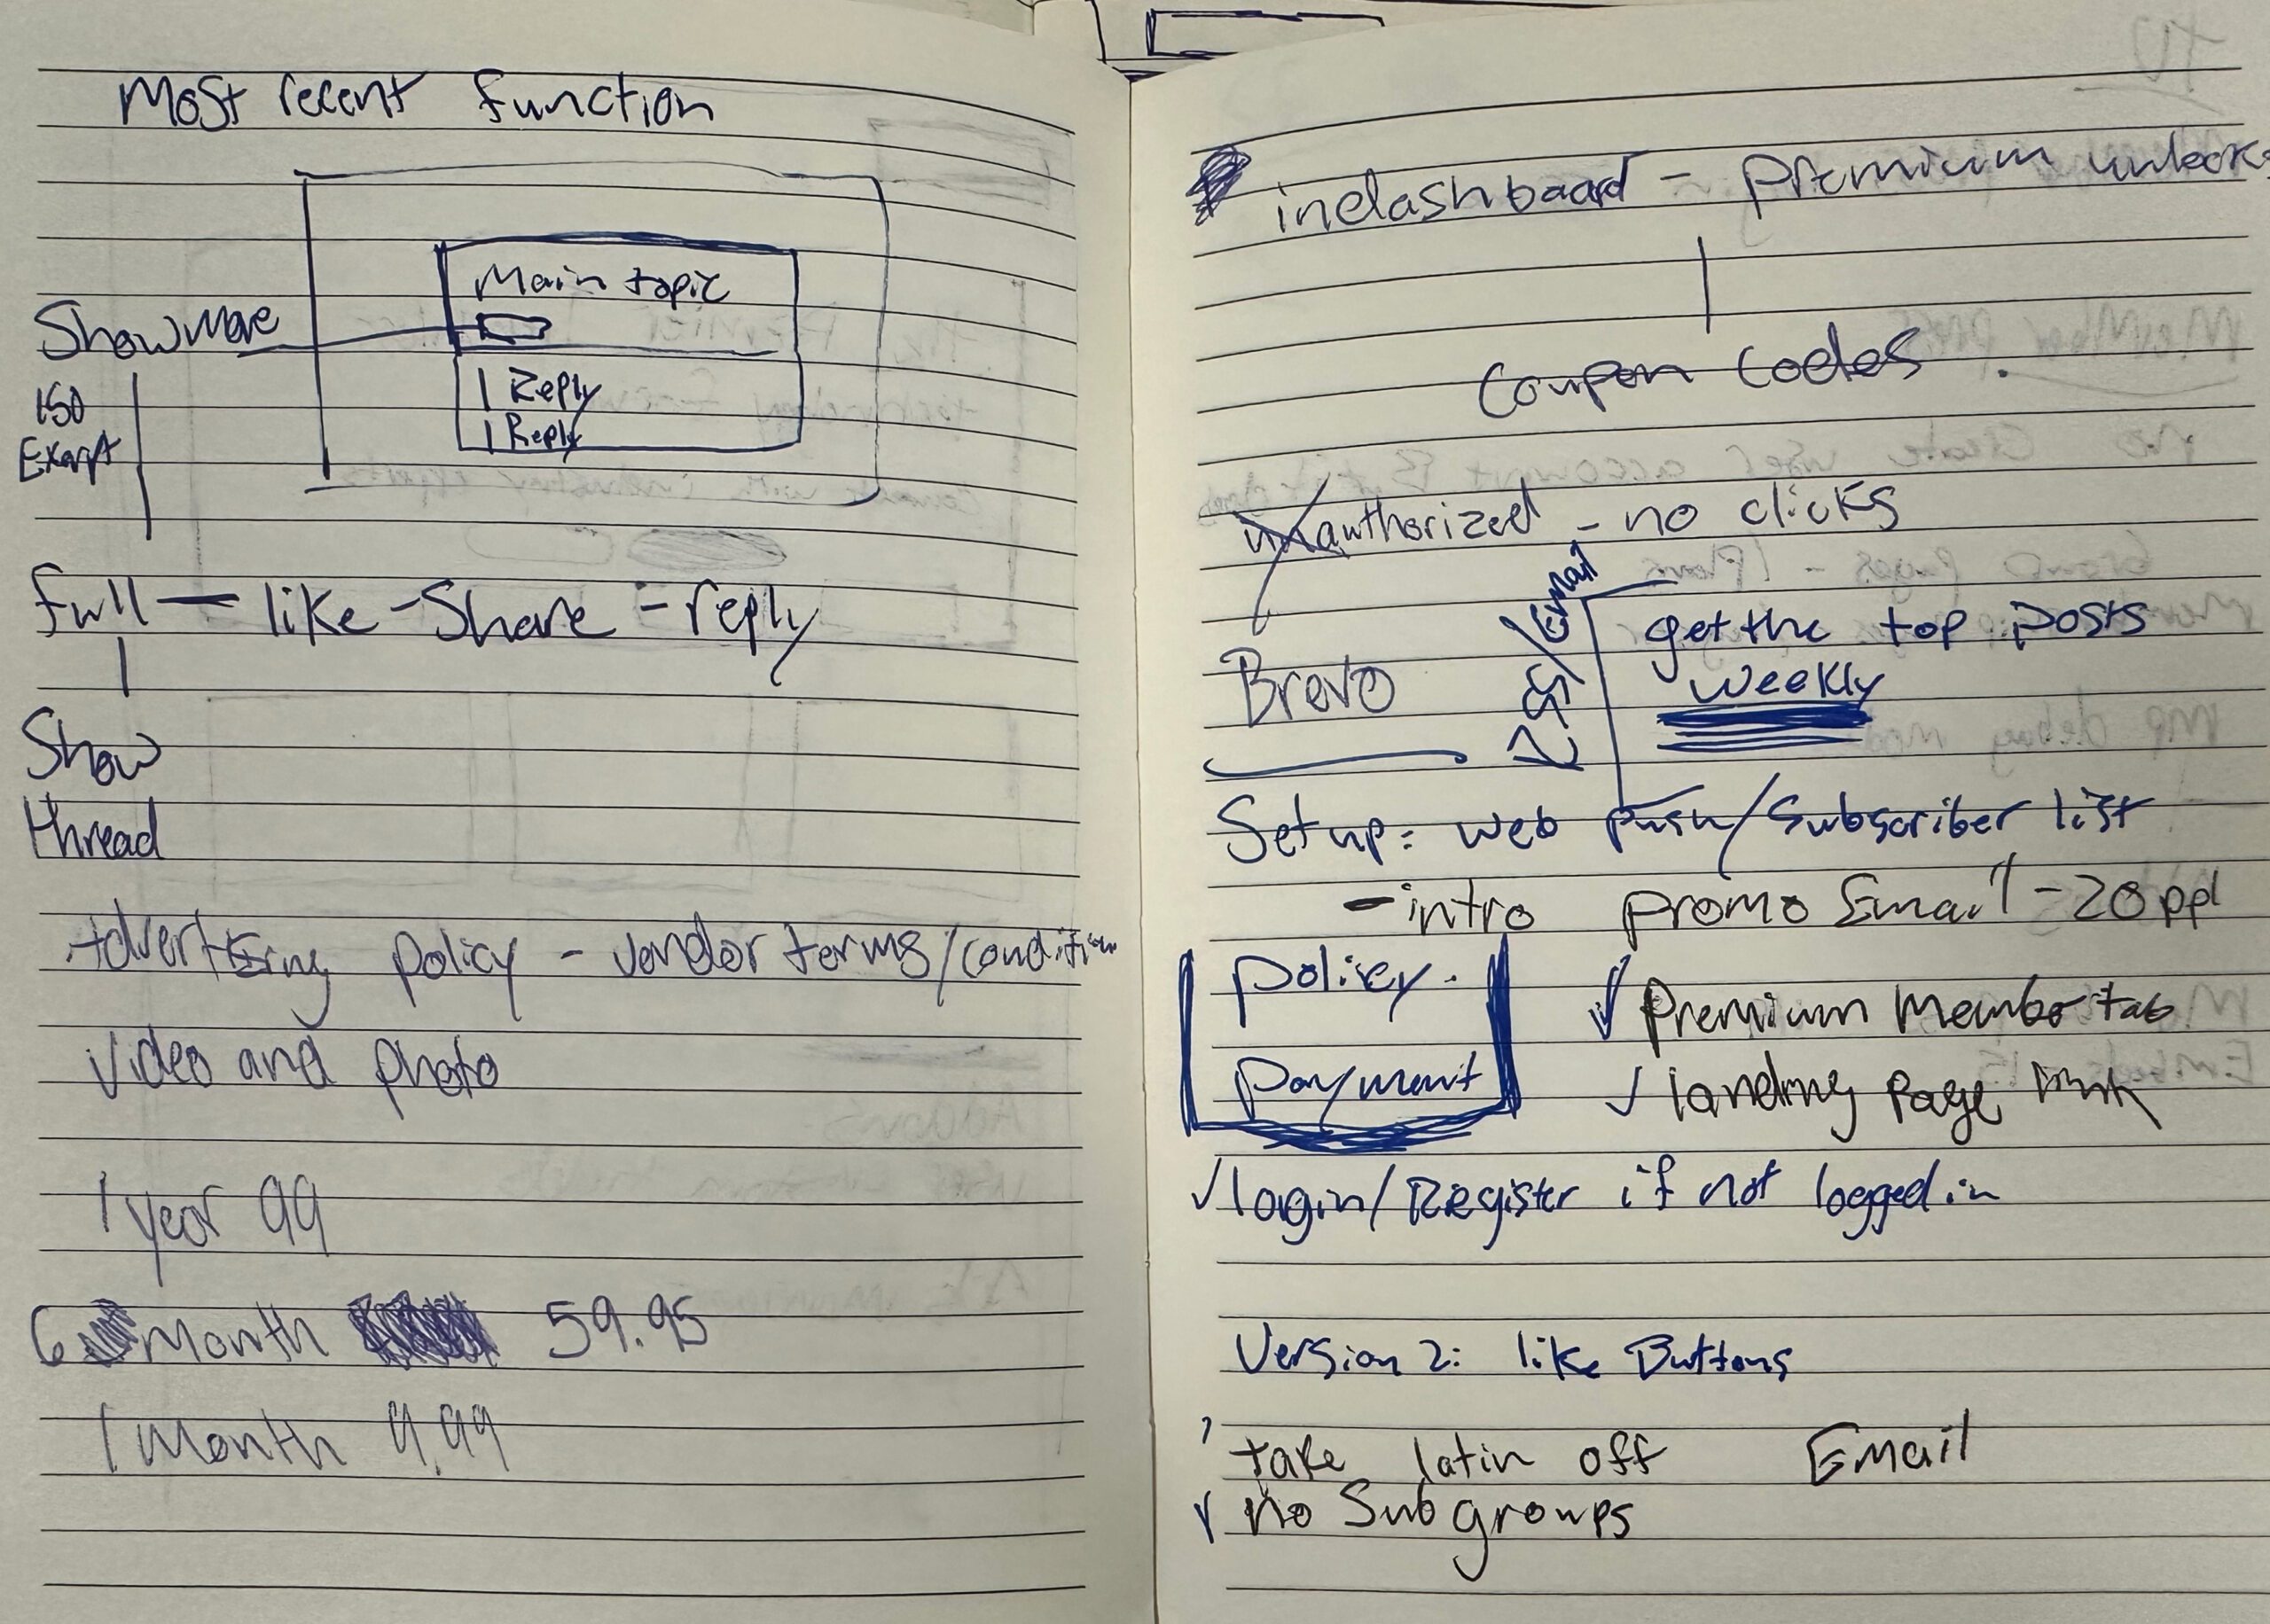 Most recent function
Main topic
Show More
1 Reply
1 Reply
150
Exerpt
full — like - Share - reply
Show
thread
Advertising policy - vendor terms/condition
video and photo
1 year 99
6 month 59.95
1 month 9.99
in dashboard - premium unlock
Coupon Codes
authorized - no clicks
Email
get the top posts
weekly
Brevo
Set up: web push/Subscriber list
- intro promo Email - 20 ppl
policy.
payment
✓ Premium Member tab
✓ landing page link
✓ login/Register if not logged in
Version 2: like Buttons
take latin off Email
✓ no Sub groups